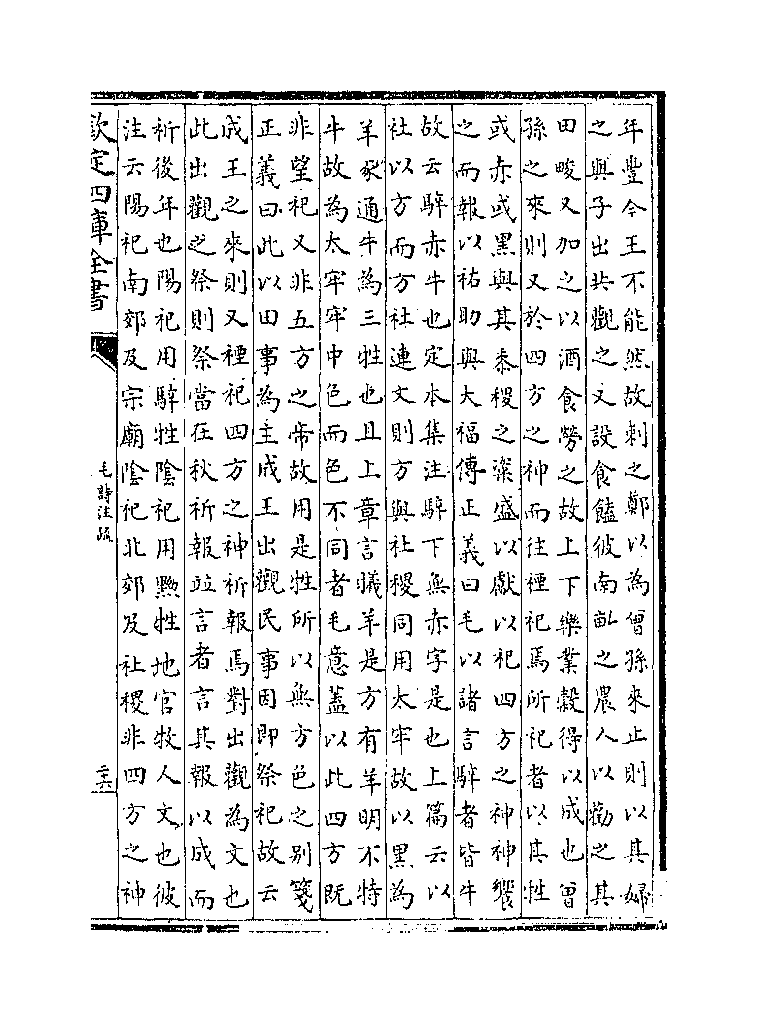 年豐今王不能然故刺之鄭以為曽孫來止則以其婦
之與子出共觀之又設食饁彼南畝之農人以勸之其
田畯又加之以酒食勞之故上下樂業穀得以成也曽
孫之來則又於四方之神而往禋祀焉所祀者以其牲
或赤或黑與其黍稷之粢盛以獻以祀四方之神神饗
之而報以祐助與大福傳正義曰毛以諸言騂者皆牛
故云騂赤牛也定本集注騂下無赤字是也上篇云以
社以方而方社連文則方與社稷同用太牢故以黒為
羊豕通牛為三牲也且上章言犧羊是方有羊明不特
牛故為太牢牢中色而色不同者毛意蓋以此四方既
非望祀又非五方之帝故用是牲所以無方色之别箋
正義曰此以田事為主成王出觀民事因即祭祀故云
成王之來則又禋祀四方之神祈報焉對出觀為文也
此出觀之祭則祭當在秋祈報並言者言其報以成而
祈後年也陽祀用騂牲陰祀用黝牲地官牧人文也彼
注云陽祀南郊及宗廟陰祀北郊及社稷非四方之神
欽定四庫全書
毛詩注疏
二十六